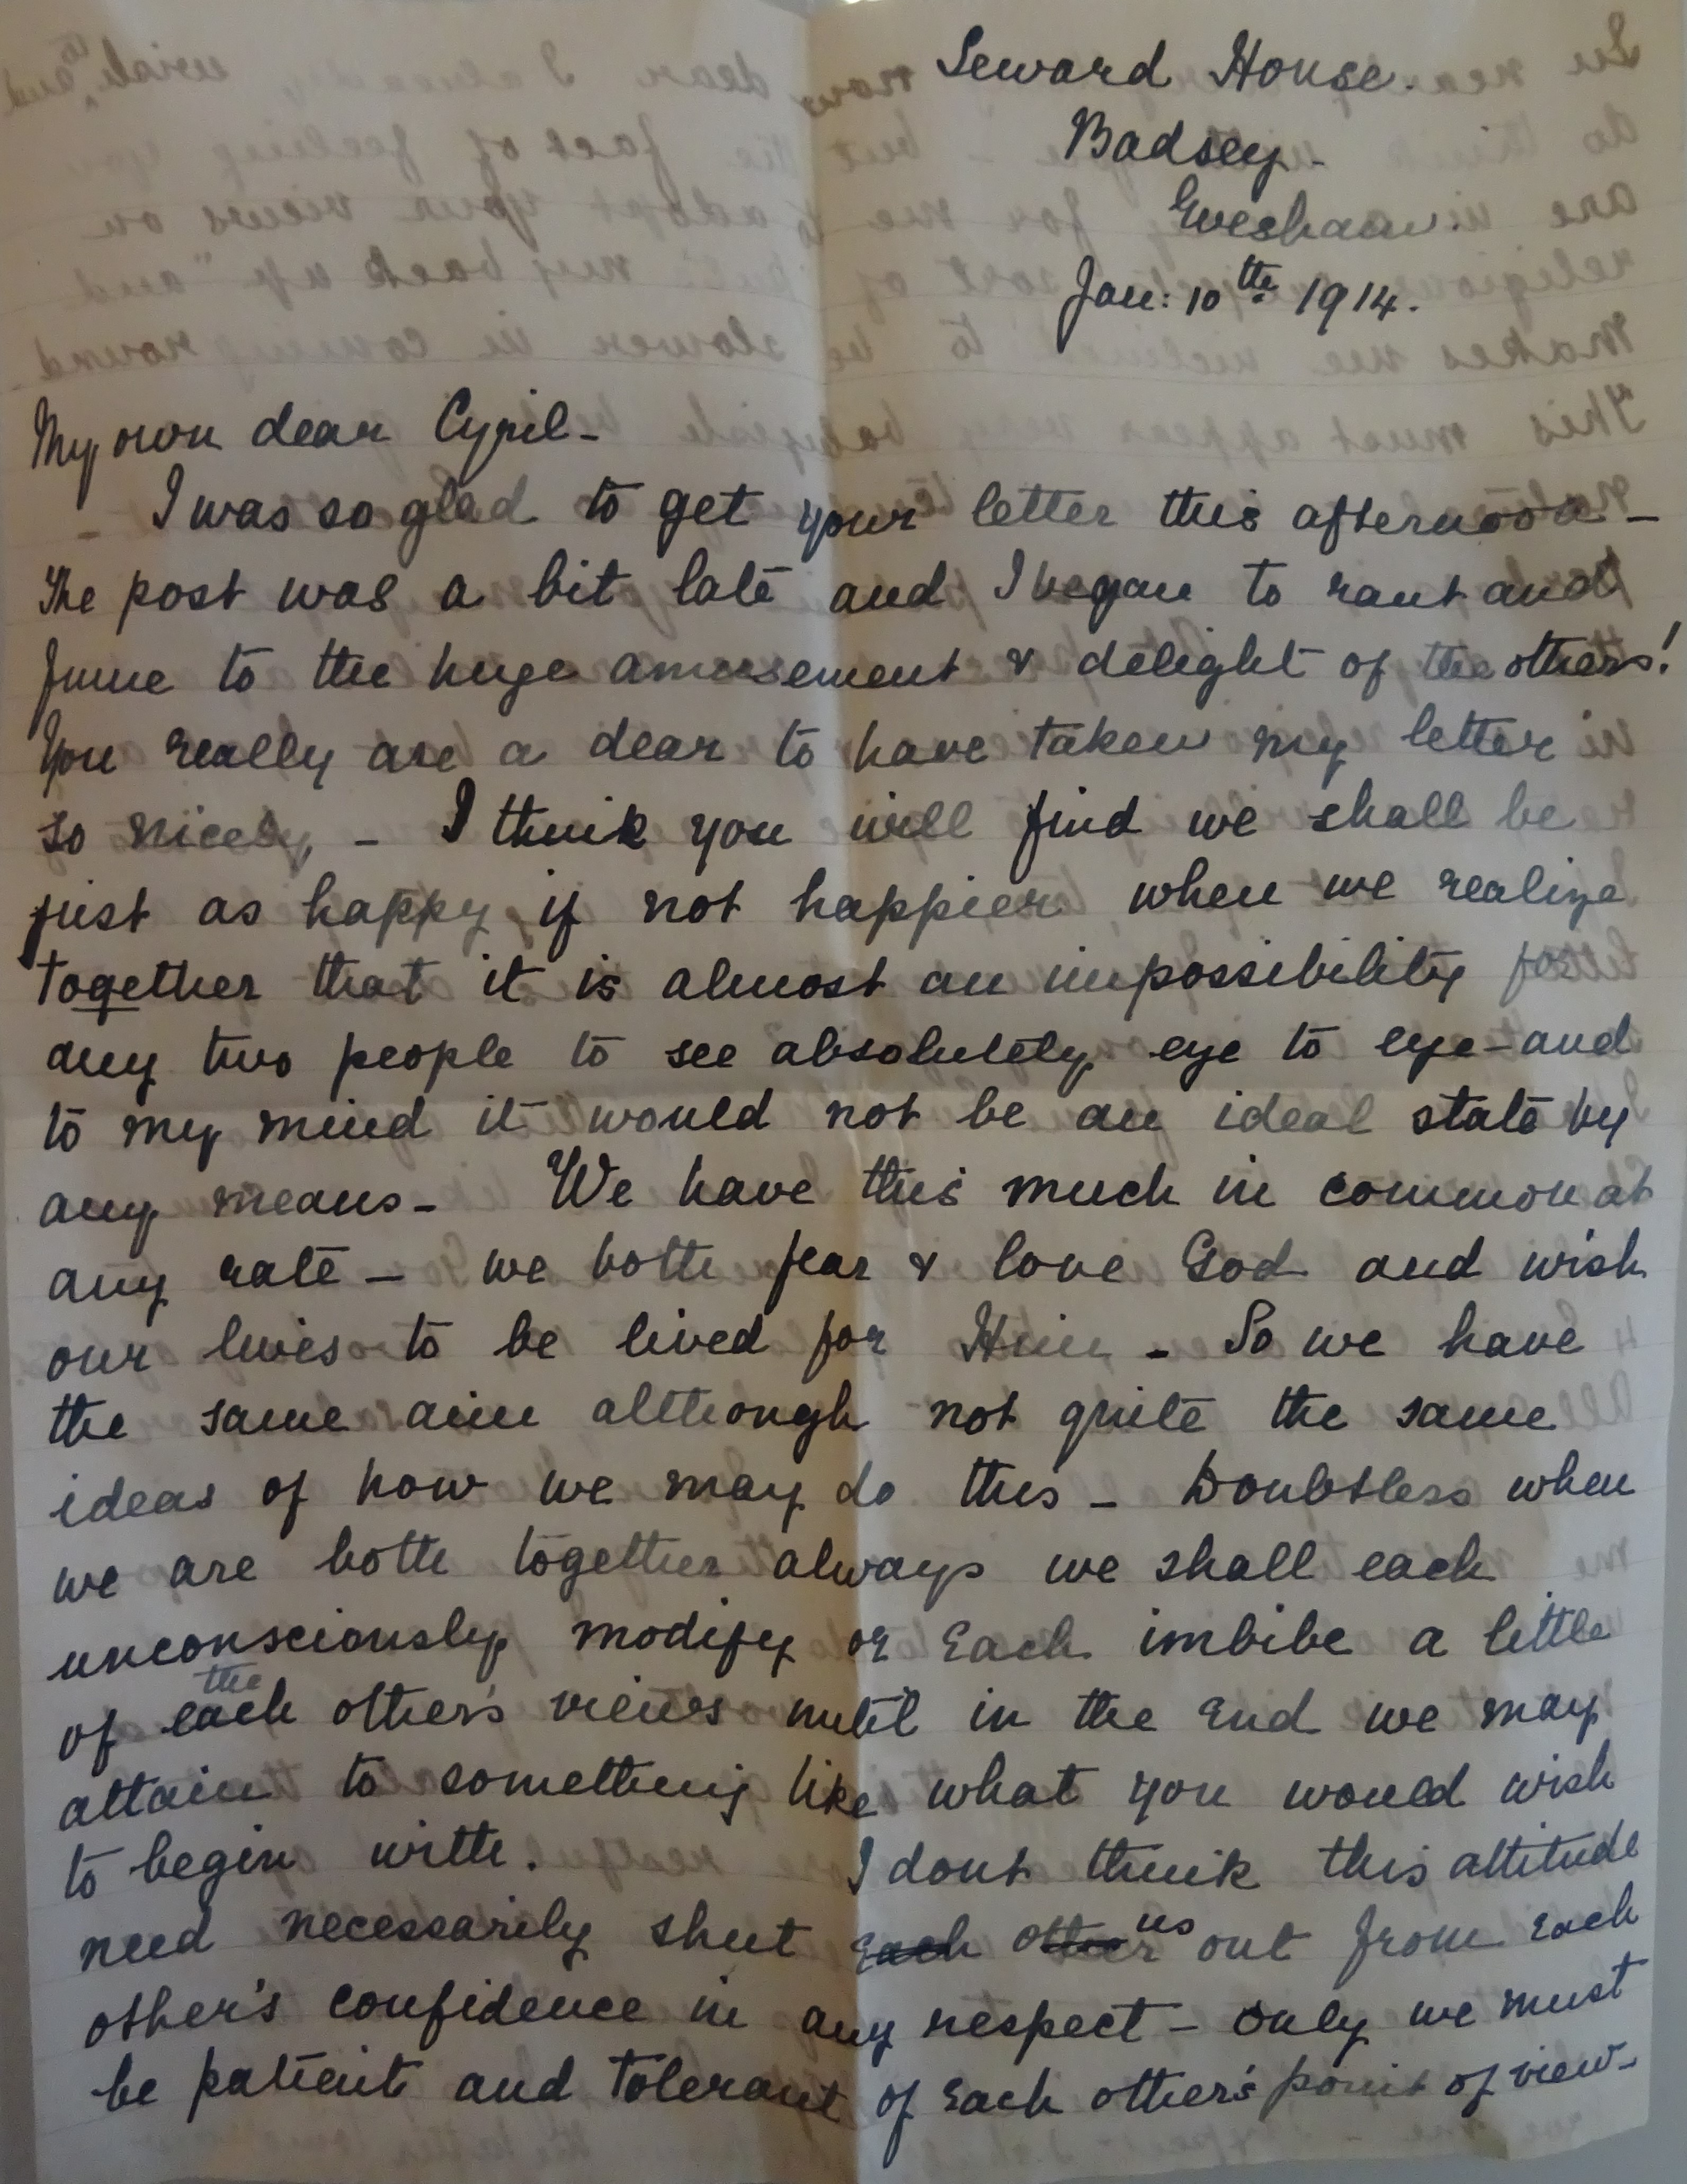 Seward House.
Badsey -
Evesham.
Jan: 10th 1914.
My own dear Cyril -
I was so glad to get your letter this afternoon -
The post was a bit late and I began to rant and
fume to the huge amusement & delight of the others!
You really are a dear to have taken my letter
so nicely, - I think you will find we shall be
just as happy, if not happier when we realize
together that it is almost an impossibility for
any two people to see absolutely eye to eye - and
to my mind it would not be an ideal state by
any means - We have this much in common at
any rate - we both fear & love God and wish
our lives to be lived for Him - So we have
the same aim although not quite the same
ideas of how we may do this - Doubtless when
we are both together always we shall each
unconsciously modify or each imbibe a little
of each the other's views until in the end we may
attain to something like what you would wish
to begin with. I dont think this attitude
need necessarily shut each other us out from each
other's confidence in any respect - only we must
be patient and tolerant of each other's point of view -